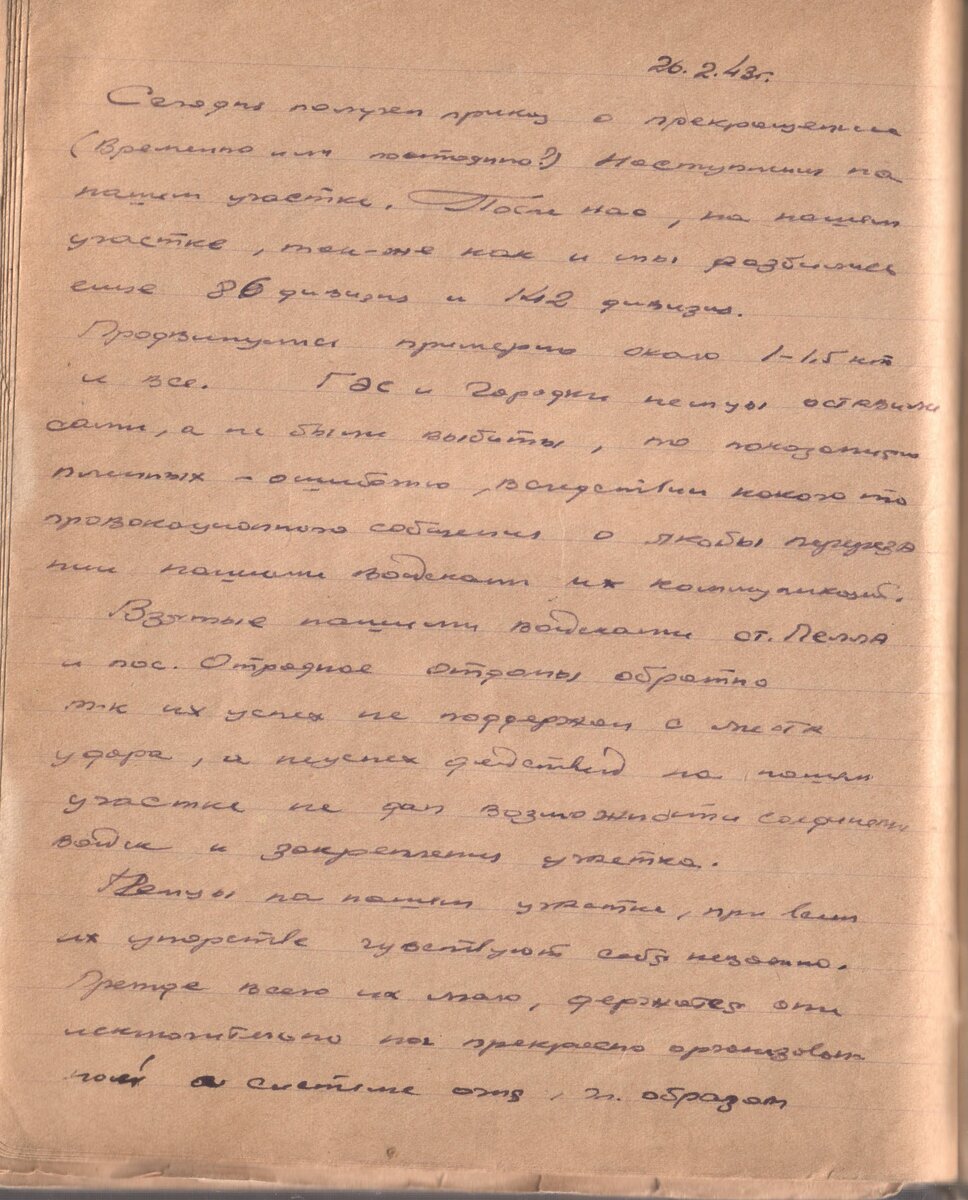 26.2.43г.
Сегодня получен приказ о прекращении
(временно или постоянно?) наступления на
нашем участке. После нас, на нашем
участке, так-же как и мы разбились
еще 86 дивизия и 142 дивизия.
Продвинулись примерно около 1-1.5 км
и все. ГЭС и Городки немцы оставили
сами, а не были выбиты, по показанию
пленных - ошибочно, вследствии какого то
провокационного сообщения о якобы перереза
нии нашими войсками их коммуникаций.
Взятые нашими войсками ст. Пелла
и пос. Отрадное отданы обратно
тк их успех не поддержан с места
удара, а неуспех действий на нашем
участке не дал возможности соединения
войск и закрепления участка.
Немцы на нашем участке, при всем
их упорстве чувствуют себя неважно.
Прежде всего их мало, держатся они
исключительно на прекрасно организован
ной системе огня, гл. образом